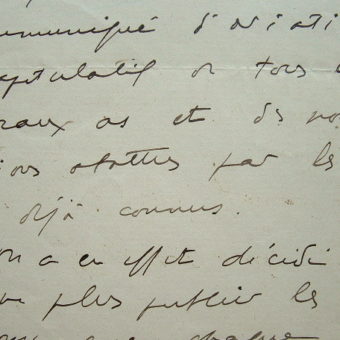 mmuniqué d'aviati
apitulatif on tous
raux as et des no
ions abattus par les
déjà connus.
on a en effet décidé
ne plus publier les